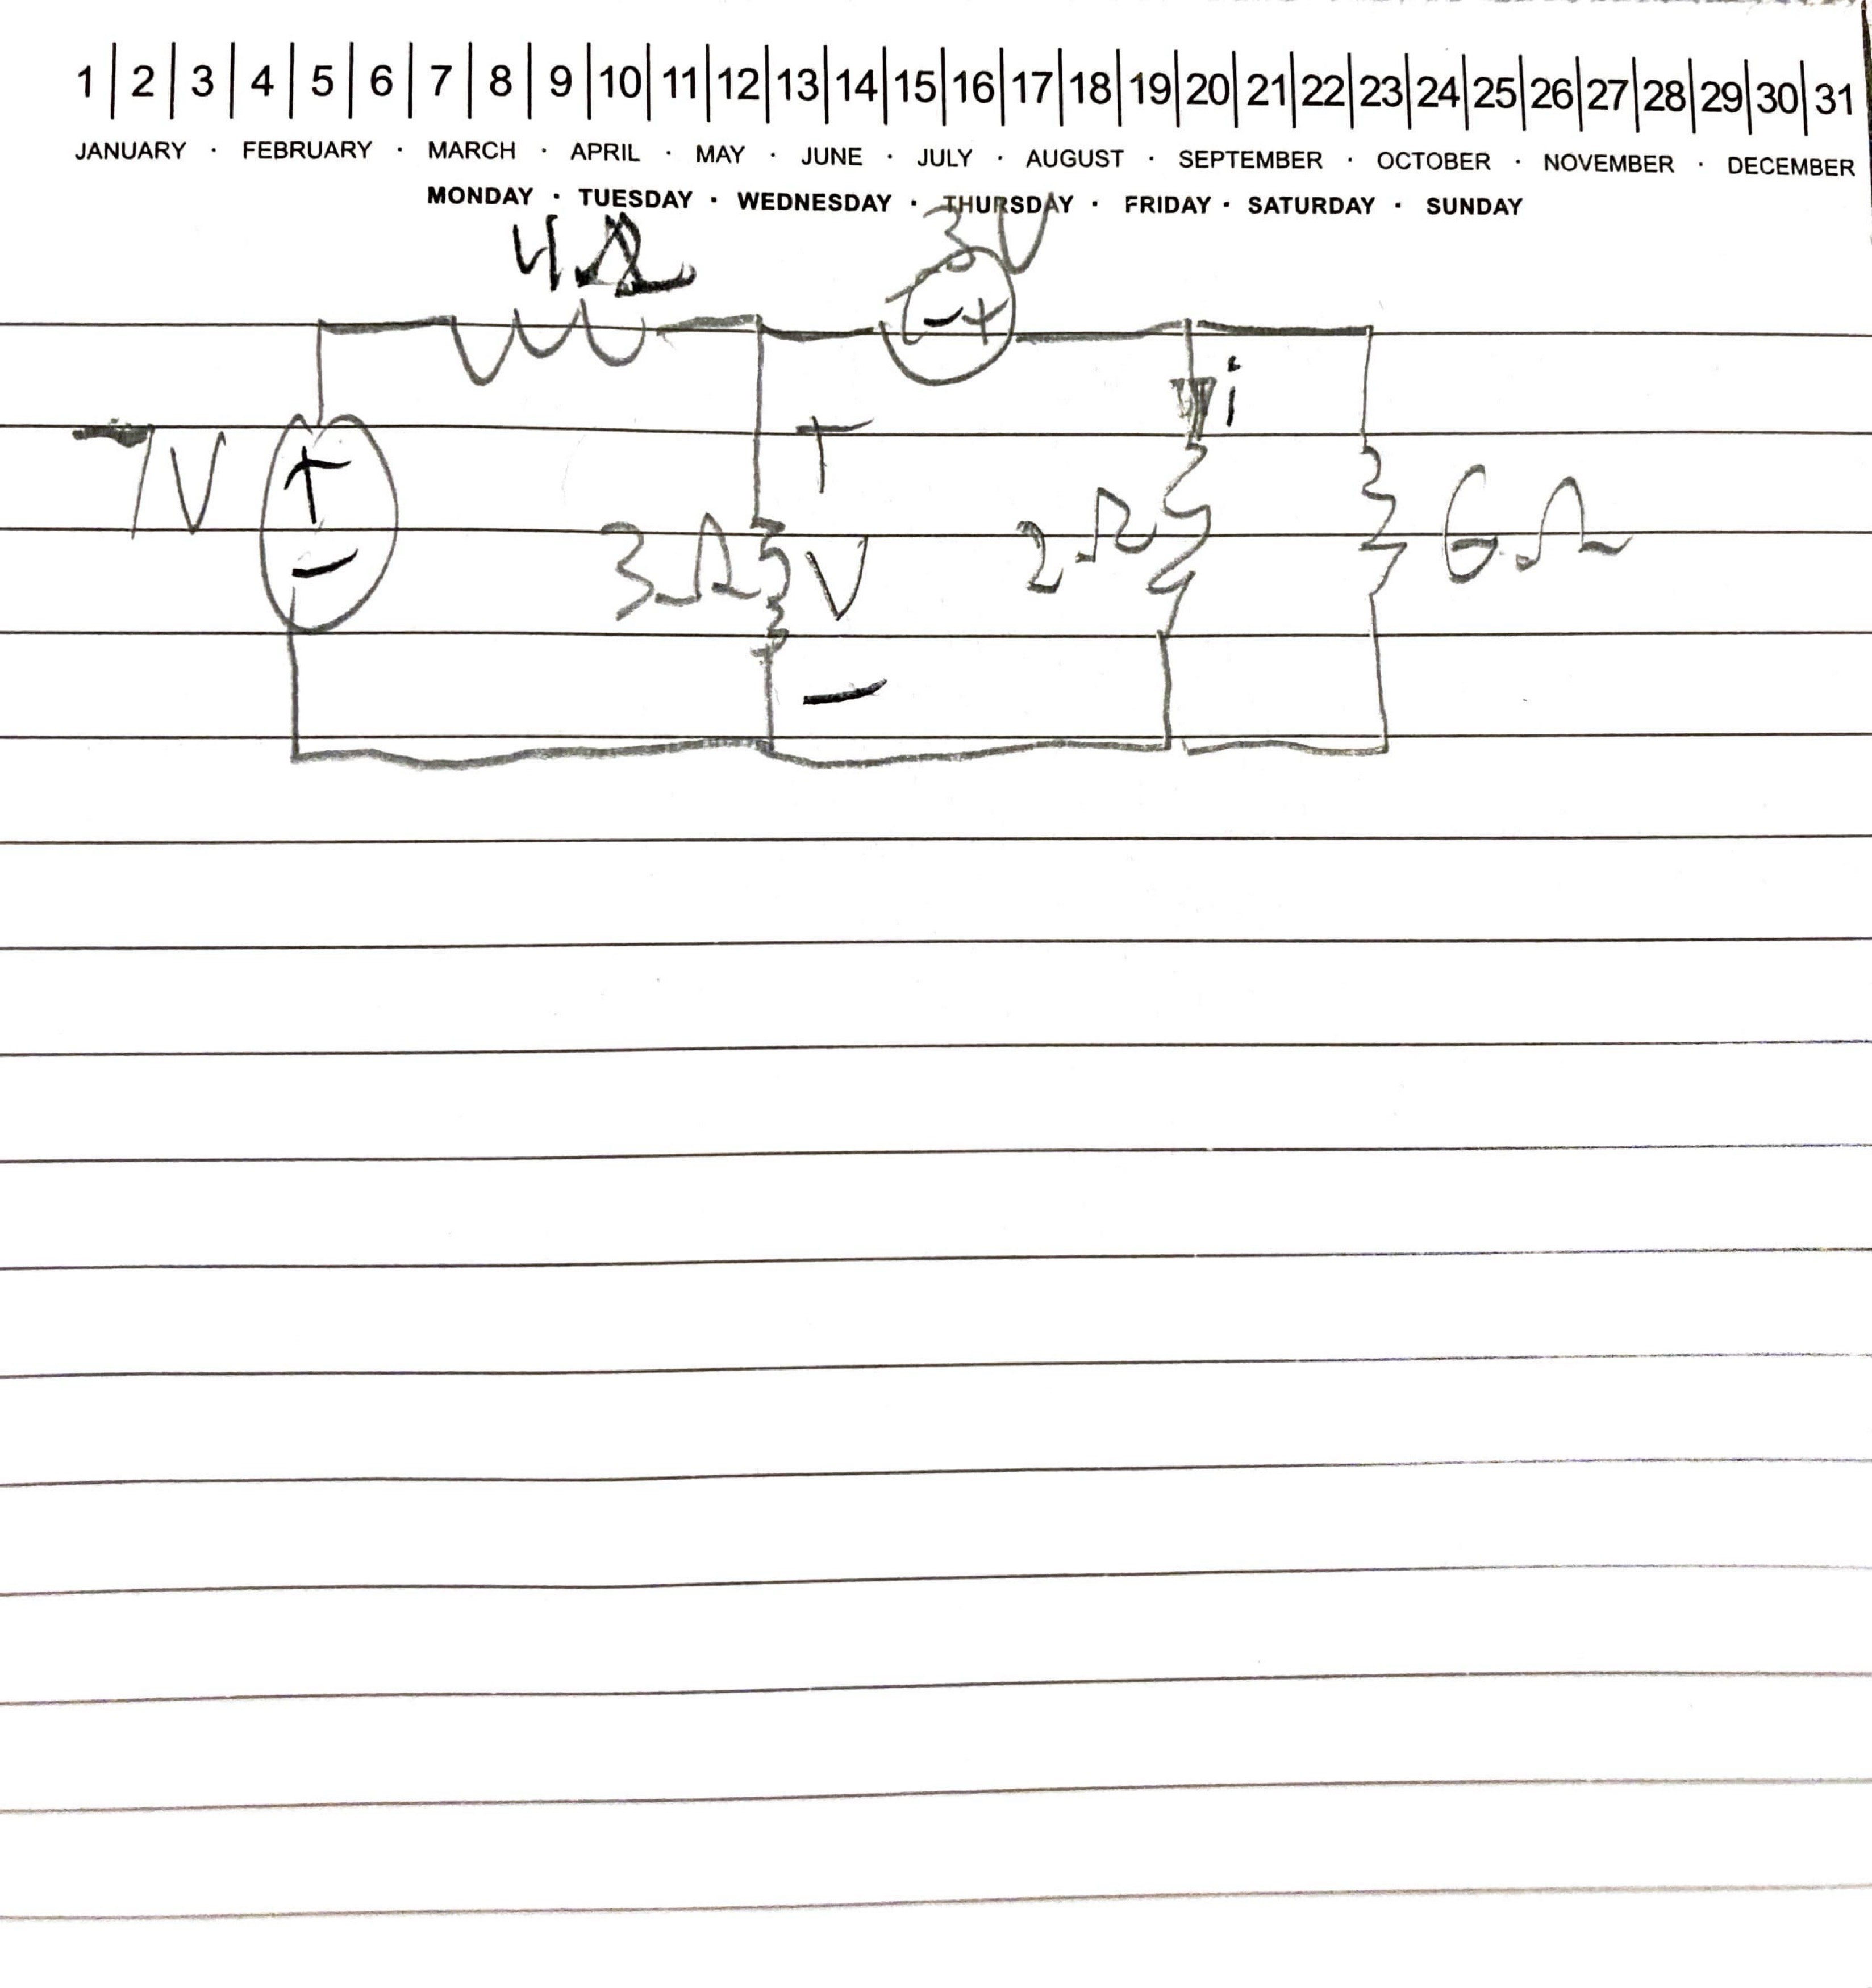 1 | 2 | 3 | 4 | 5 | 6 | 7 | 8 | 9 | 10 | 11 | 12 | 13 | 14 | 15 | 16 | 17 | 18 | 19 | 20 | 21 | 22 | 23 | 24 | 25 | 26 | 27 | 28 | 29 | 30 | 31
JANUARY · FEBRUARY · MARCH · APRIL · MAY · JUNE · JULY · AUGUST · SEPTEMBER · OCTOBER · NOVEMBER · DECEMBER
MONDAY · TUESDAY · WEDNESDAY · THURSDAY · FRIDAY · SATURDAY · SUNDAY
4Ω 3V
- +
i
+ +
7V 3Ω V 2Ω 6Ω
-
-